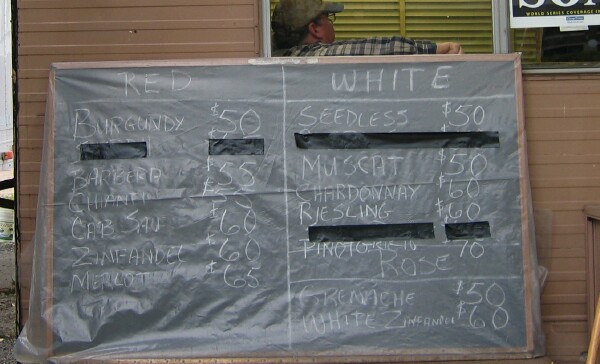 RED
BURGUNDY $50
BARBERA $55
CHIANTI
CAB SAU $60
ZINFANDEL $60
MERLOT $65
WHITE
SEEDLESS $50
MUSCAT $50
CHARDONNAY $60
RIESLING $60
PINOT GRIGIO 70
ROSE
GRENACHE $50
WHITE ZINFANDEL $60
WORLD SERIES COVERAGE